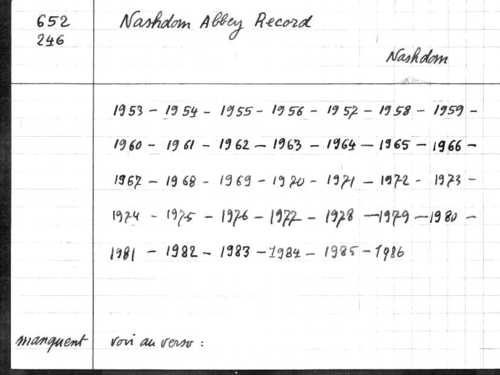 652 Nashdom Abbey Record
246
Nashdom
1953 - 1954 - 1955 - 1956 - 1957 - 1958 - 1959 -
1960 - 1961 - 1962 - 1963 - 1964 - 1965 - 1966 -
1967 - 1968 - 1969 - 1970 - 1971 - 1972 - 1973 -
1974 - 1975 - 1976 - 1977 - 1978 - 1979 - 1980 -
1981 - 1982 - 1983 - 1984 - 1985 - 1986
manquent voir au verso :